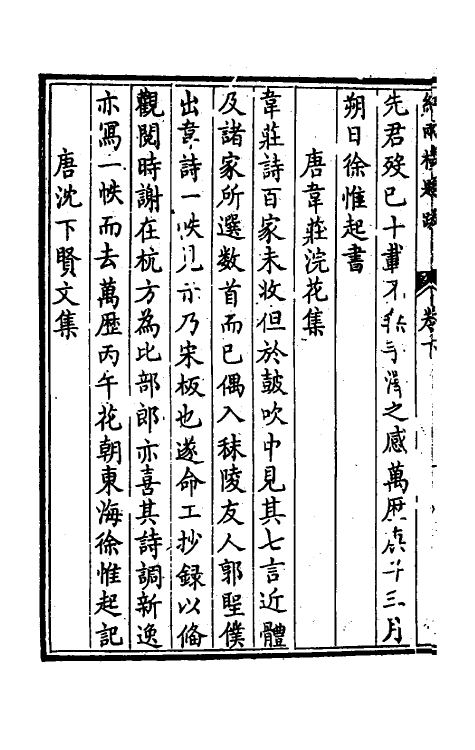 紅雨樓題跋 卷下
先君歿已十載不勝手澤之感萬曆庚子三月
朔日徐惟起書
唐韋莊浣花集
韋莊詩百家未收但於鼓吹中見其七言近體
及諸家所選数首而已偶入秣陵友人郭聖僕
出韋詩一帙見示乃宋板也遂命工抄録以俻
觀閱時謝在杭方為比部郎亦喜其詩調新逸
亦寫一帙而去萬歷丙午花朝東海徐惟起記
唐沈下賢文集